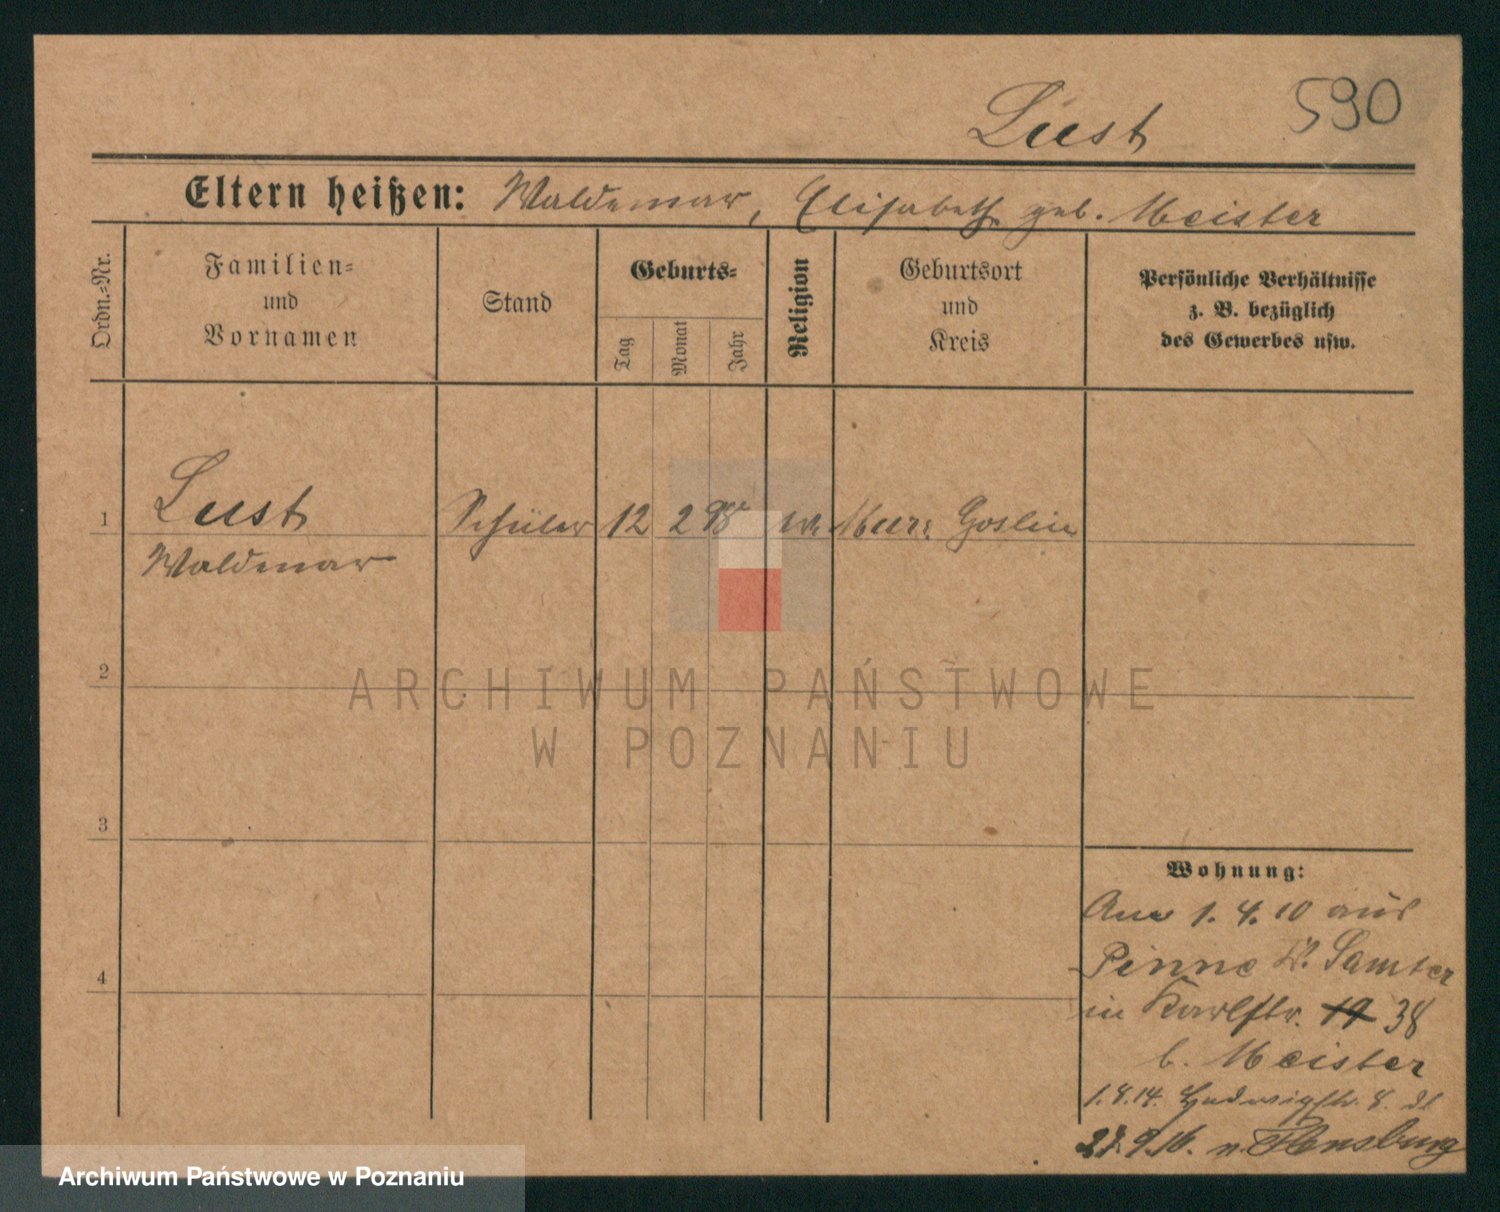 590
Lust
Eltern heißen: Waldemar, Elisabeth geb. Meister
Ordn.=Nr.
Familien=
und
Vornamen
Stand
Geburts=
Tag
Monat
Jahr
Religion
Geburtsort
und
Kreis
Persönliche Verhältnisse
z. B. bezüglich
des Gewerbes usw.
1
Lust
Schüler 12 2 98 Goslin
Waldemar
2
ARCHIWUM PAŃSTWOWE
W POZNANIU
3
Wohnung:
Am 1. 4. 10 aus
4
Pinne K. Samter
in Karlstr. 19 38
b. Meister
1.4.14. Hedwigstr. 8.
9.16. n. Flensburg
Archiwum Państwowe w Poznaniu